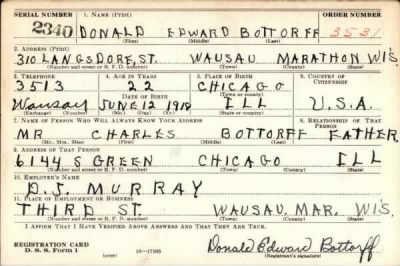 SERIAL NUMBER 1. NAME (Print) ORDER NUMBER
2340 DONALD EDWARD BOTTORFF 3531
(First) (Middle) (Last)
2. ADDRESS (Print)
310 LANGSDORF, ST. WAUSAU MARATHON WIS.
(Number and street or R. F. D. number) (Town) (County) (State)
3. TELEPHONE 4. AGE IN YEARS 5. PLACE OF BIRTH 6. COUNTRY OF CITIZENSHIP
3513 22 CHICAGO
DATE OF BIRTH (Town or county)
Wausau JUNE 12 1918 ILL U.S.A.
(Exchange) (Number) (Mo.) (Day) (Yr.) (State or country)
7. NAME OF PERSON WHO WILL ALWAYS KNOW YOUR ADDRESS 8. RELATIONSHIP OF THAT PERSON
MR CHARLES BOTTORFF FATHER
(Mr., Mrs., Miss) (First) (Middle) (Last)
9. ADDRESS OF THAT PERSON
6144 S GREEN CHICAGO ILL
(Number and street or R. F. D. number) (Town) (County) (State)
10. EMPLOYER'S NAME
D.J. MURRAY
11. PLACE OF EMPLOYMENT OR BUSINESS
THIRD ST WAUSAU, MAR. WIS.
(Number and street or R. F. D. number) (Town) (County) (State)
I AFFIRM THAT I HAVE VERIFIED ABOVE ANSWERS AND THAT THEY ARE TRUE.
REGISTRATION CARD
D. S. S. Form 1 (over) 16—17105 Donald Edward Bottorff
(Registrant's signature)